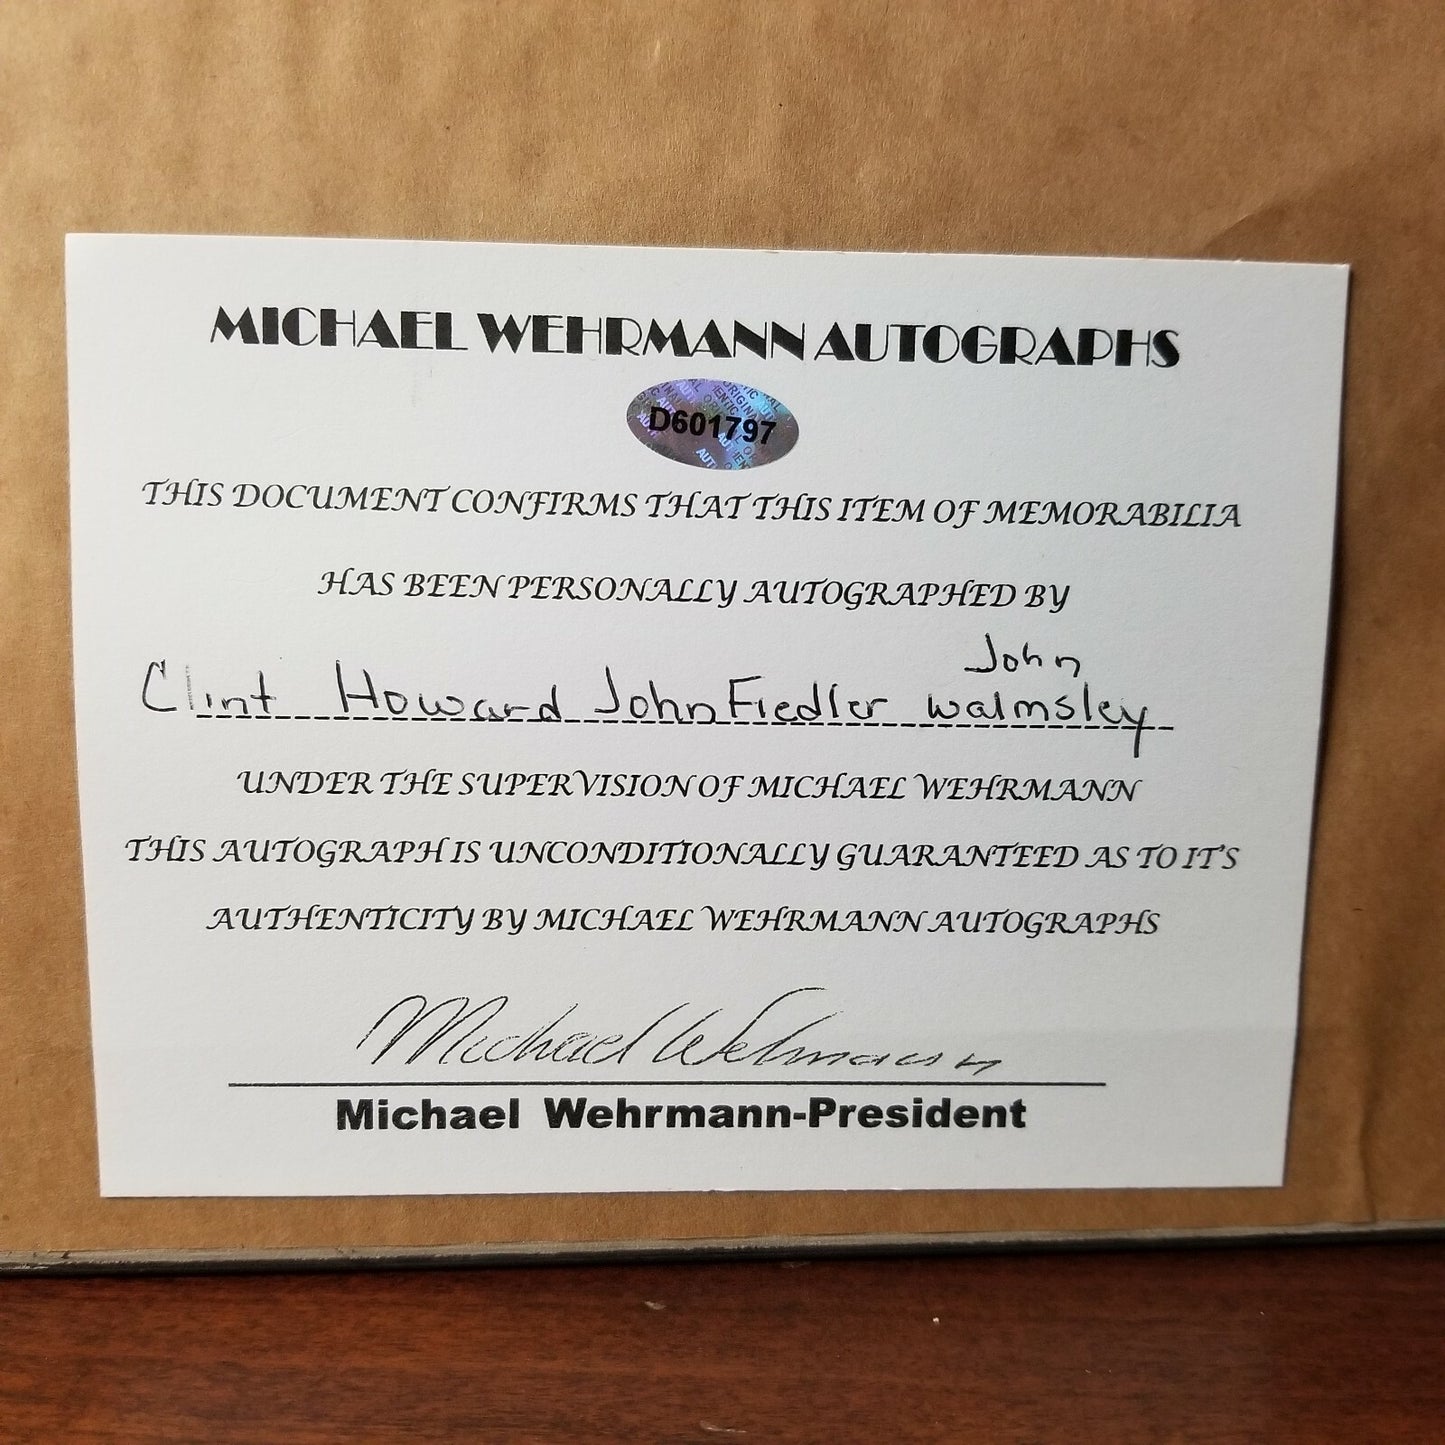 MICHAEL WEHRMANN AUTOGRAPHS
D601797
THIS DOCUMENT CONFIRMS THAT THIS ITEM OF MEMORABILIA
HAS BEEN PERSONALLY AUTOGRAPHED BY
John
Clint Howard John Fiedler walmsley
UNDER THE SUPERVISION OF MICHAEL WEHRMANN
THIS AUTOGRAPH IS UNCONDITIONALLY GUARANTEED AS TO IT'S
AUTHENTICITY BY MICHAEL WEHRMANN AUTOGRAPHS
Michael Wehrmann
Michael Wehrmann-President